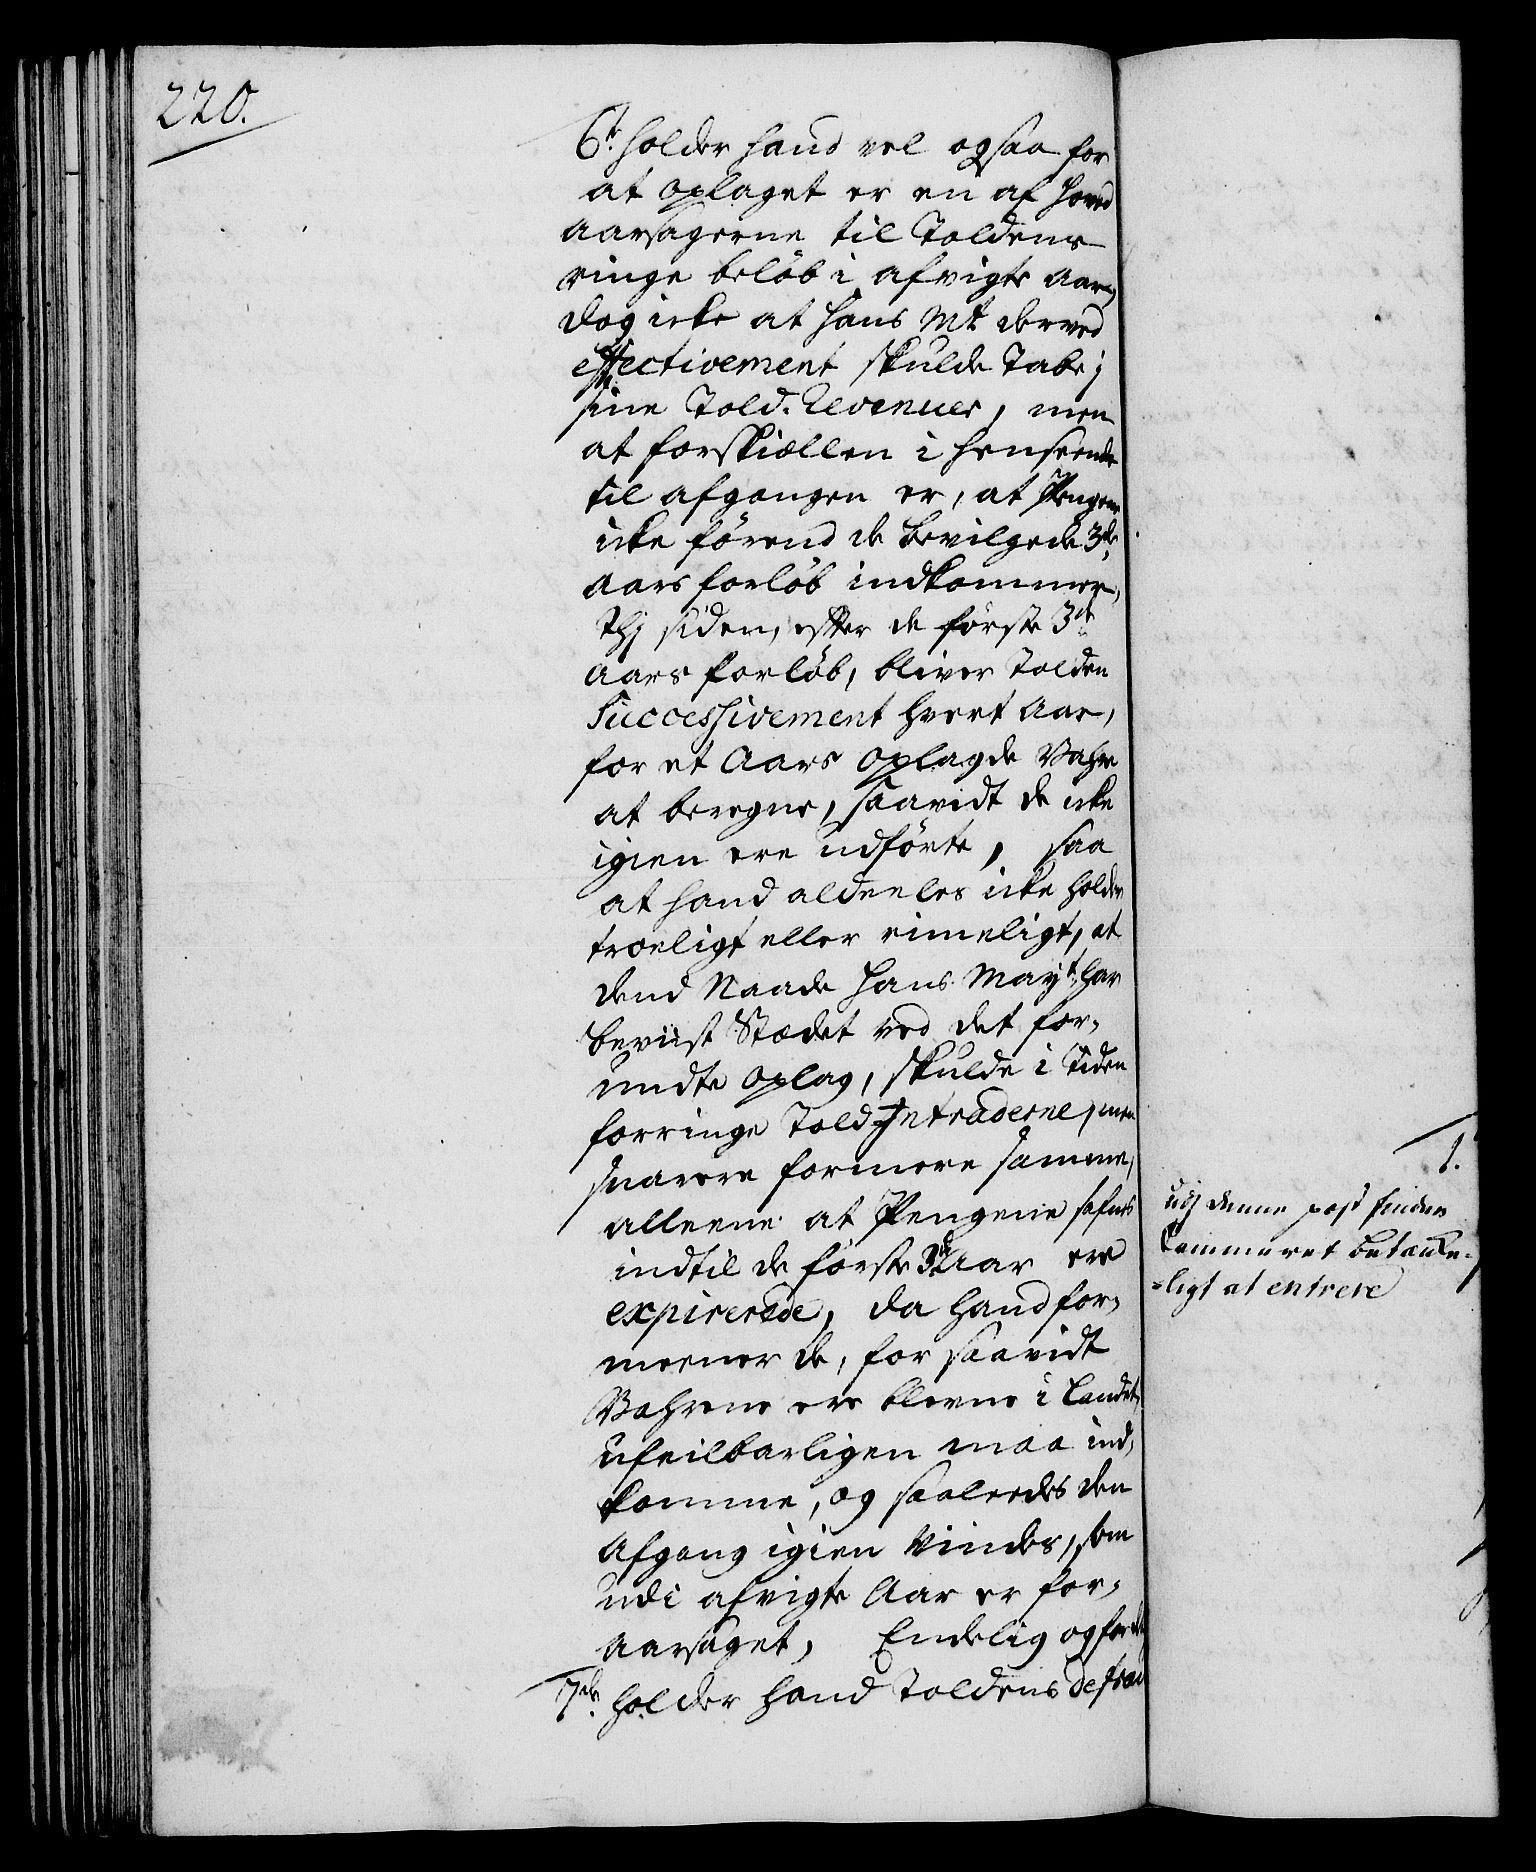 220.
6te holder hand vel ogsaa for
at oplaget er en af hoved
aarsagerne til Toldens
ringe beløb i afvigte aar,
dog icke at hans Mt derved
effectivement skulde tabe i
sine Told-Revenuer, men
at forskiællen i henseende
til afgangen er, at Pengene
icke førend de bevilgede 3de
aars forløb indkommer,
thj siden, efter de første 3de
aars forløb, bliver Tolden
Successivement hvert aar,
for et Aars oplagde Vahre
at beregne, saavidt de icke
igien ere udførte, saa
at hand aldeeles icke holder
troeligt eller rimeligt, at
dend Naade hans Mayt har
beviist Stædet ved det for-
undte oplag, skulde i tiden
forringe Told Intraderne, men
snarere formere samme,
alleene at Pengene hafves
indtil de første 3de Aar ere
expirerede, da hand for-
meener de, for saavidt
Vahrene ere blevne i Landet,
ufeilbarligen maa ind-
komme, og saaleedes den
afgang igien vindes, som
udi afvigte Aar er for-
aarsaget, Endelig og for det
7de holder hand Toldens defrau
1.
udj denne post finder
Cammeret betænke-
-ligt at entrere